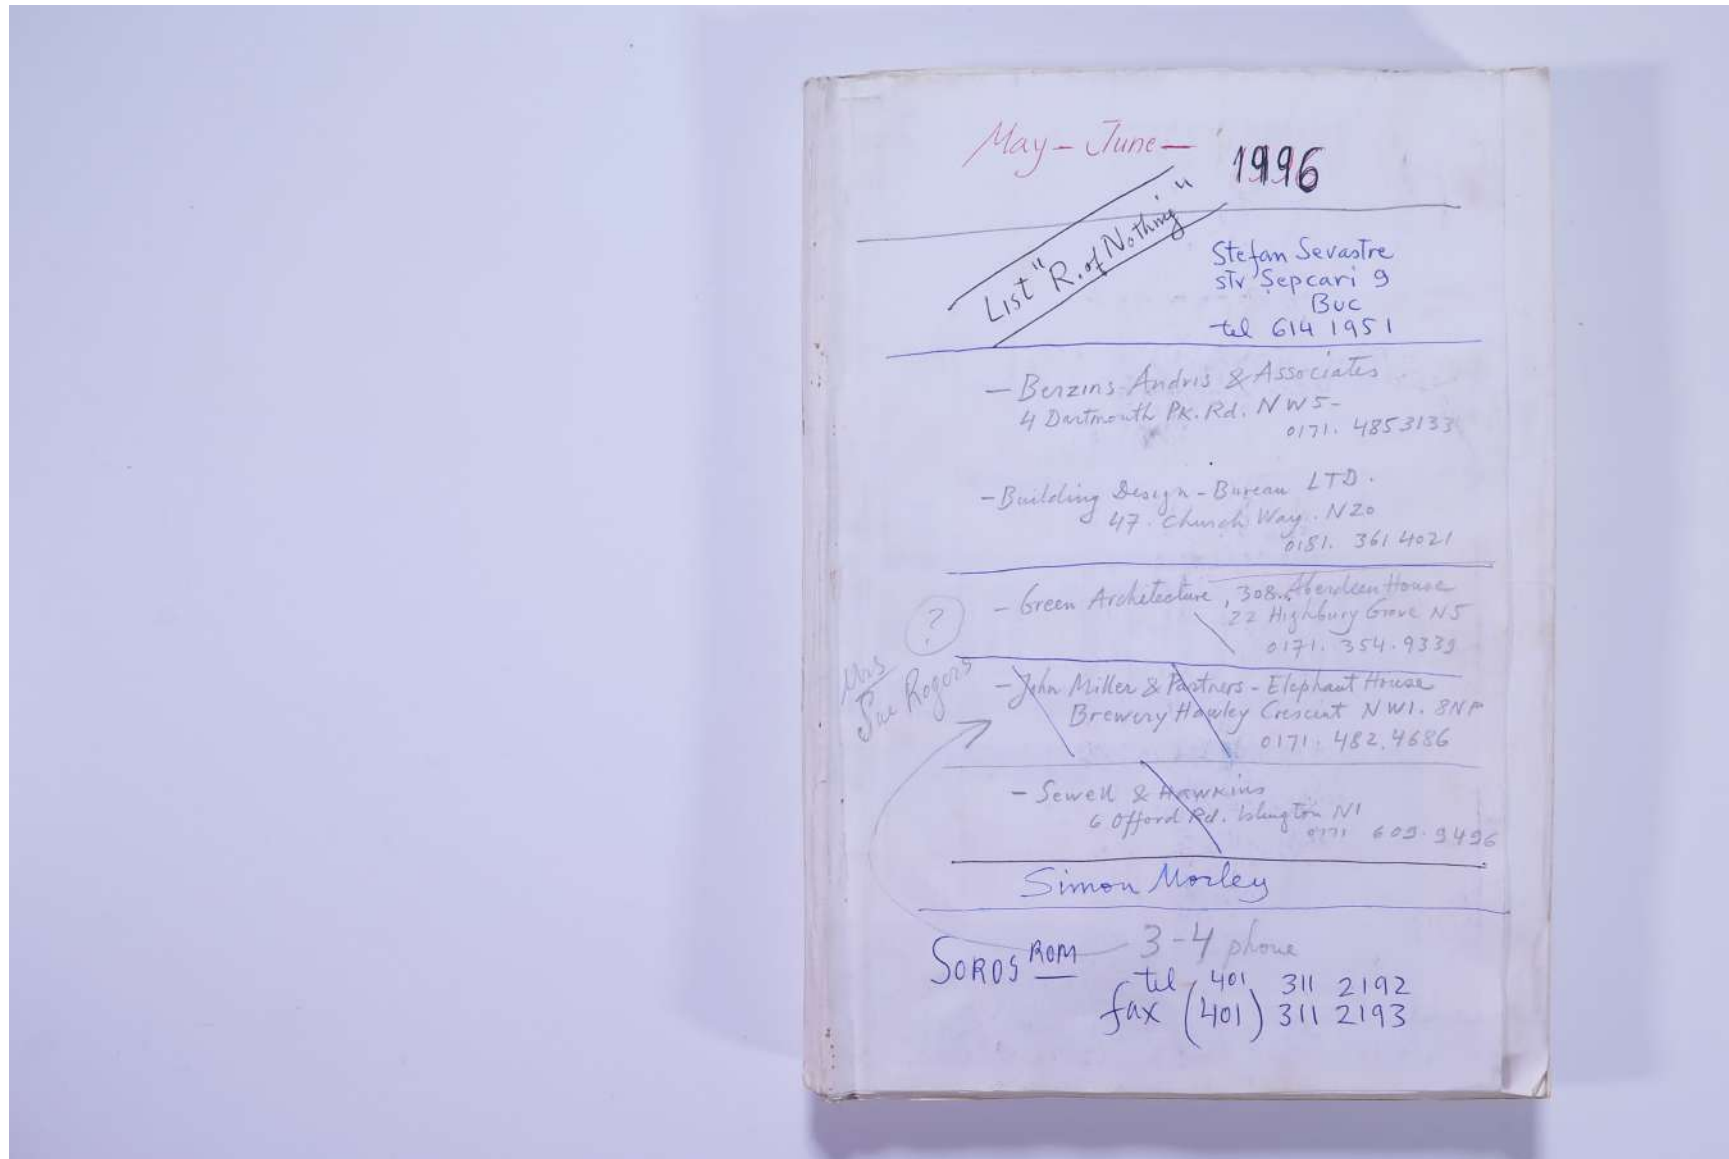 May - June - 1996
List "R. of Nothing"
Stefan Sevastre
str Șepcari 9
Buc
tel 614 1951
- Berzins Andris & Associates
4 Dartmouth Pk. Rd. NW5 -
0171. 4853133
- Building Design - Bureau LTD.
47. Church Way. N20
0181. 361 4021
- Green Architecture, 308. Aberdeen House
22 Highbury Grove N5
0171. 354. 9339
?
Mrs
Sue Rogers
- John Miller & Partners - Elephant House
Brewery Hawley Crescent NW1. 8NP
0171. 482. 4686
- Sewell & Hawkins
6 Offord Rd. Islington N1
0171 609. 9496
Simon Morley
SOROS ROM - 3-4 phone
tel 401 311 2192
fax (401) 311 2193